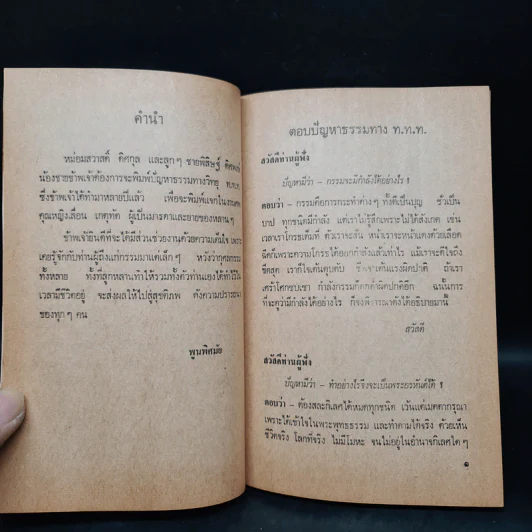 คำนำ
หม่อมสวาสดิ์ ดิศกุล และลูกๆ ชายพิสิษฐ์ ดิศพงศ์
น้องชายข้าพเจ้าต้องการจะพิมพ์ปัญหาธรรมทางวิทยุ ท.ท.ท.
ซึ่งข้าพเจ้าได้ทำมาหลายปีแล้ว เพื่อจะพิมพ์แจกในงานศพ
คุณหญิงเลื่อน เกตุทัต ผู้เป็นมารดาและยายของหลานๆ
ข้าพเจ้ายินดีที่จะได้มีส่วนช่วยงานด้วยความเต็มใจ เพราะ
เคยรู้จักกับท่านผู้ถึงแก่กรรมมาแต่เล็กๆ หวังว่ากุศลกรรม
ทั้งหลาย ทั้งที่ลูกหลานทำให้รวมทั้งตัวท่านเองได้ทำไว้ใน
เวลามีชีวิตอยู่ จะส่งผลให้ไปสู่สุขติภพ ดังความปรารถนา
ของทุกๆ คน
พูนพิศมัย
ตอบปัญหาธรรมทาง ท.ท.ท.
สวัสดีท่านผู้ฟัง
ปัญหามีว่า – กรรมจะมีกำลังได้อย่างไร ?
ตอบว่า – กรรมคือการกระทำต่างๆ ทั้งดีเป็นบุญ ชั่วเป็น
บาป ทุกชนิดมีกำลัง แต่เราไม่รู้สึกเพราะไม่ได้สังเกต เช่น
เวลาเราโกรธเต็มที่ ตัวเราจะสั่น หน้าเราจะหน้าแดงด้วยเลือด
ฉีดก็เพราะความโกรธได้ออกกำลังแล้วเท่าไร แม้เราจะดีใจถึง
ขีดสุด เราก็ใจเต้นตุบตับ ซึ่งจะเต้นแรงผิดปกติ ถ้าเรา
เศร้าโศกซบเซา กำลังกรรมก็คิดต่ำผิดปกติอีก ฉะนั้นการ
ที่จะดูว่ามีกำลังได้อย่างไร ก็จงพิจารณาดังได้อธิบายมานี้
สวัสดี
สวัสดีท่านผู้ฟัง
ปัญหามีว่า – ทำอย่างไรจึงจะเป็นพระอรหันต์ได้ ?
ตอบว่า – ต้องสละกิเลสได้หมดทุกชนิด เว้นแต่เมตตากรุณา
เพราะได้เข้าใจในพระพุทธธรรม และทำตามได้จริง ด้วยเห็น
ชีวิตจริง โลกที่จริง ไม่มีโมหะ จนไม่อยู่ในอำนาจกิเลสใดๆ
๑